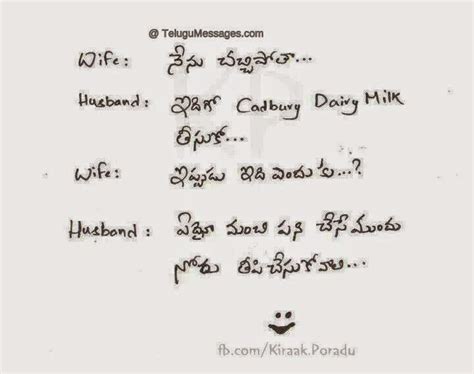 @ TeluguMessages.com
Wife: నేను చచ్చిపోతా...
Husband: ఇదిగో Cadbury Dairy Milk
తీసుకో...
Wife: ఇప్పుడు ఇది ఎందుకు...?
Husband: ఏదైనా మంచి పని చేసేముందు
నోరు తీపి చేసుకోవాలి...
fb.com/Kiraak.Poradu